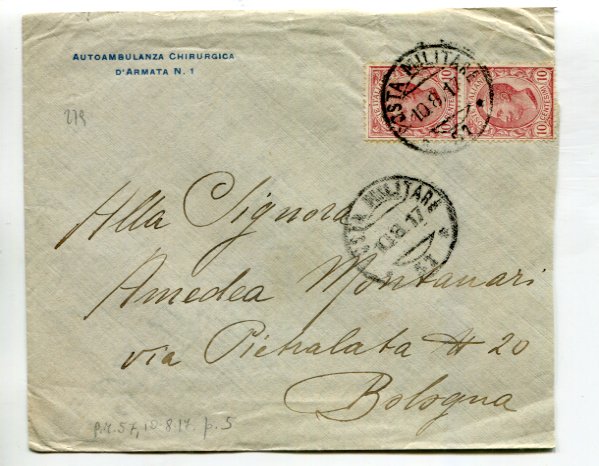 AUTOAMBULANZA CHIRURGICA
D'ARMATA N. 1
279
POSTA MILITARE
10.8.17
10
10
POSTA MILITARE
10.8.17
Alla Signora
Amedea Montanari
via Pietralata # 20
Bologna
p.M.57, 10-8.17. p. 5